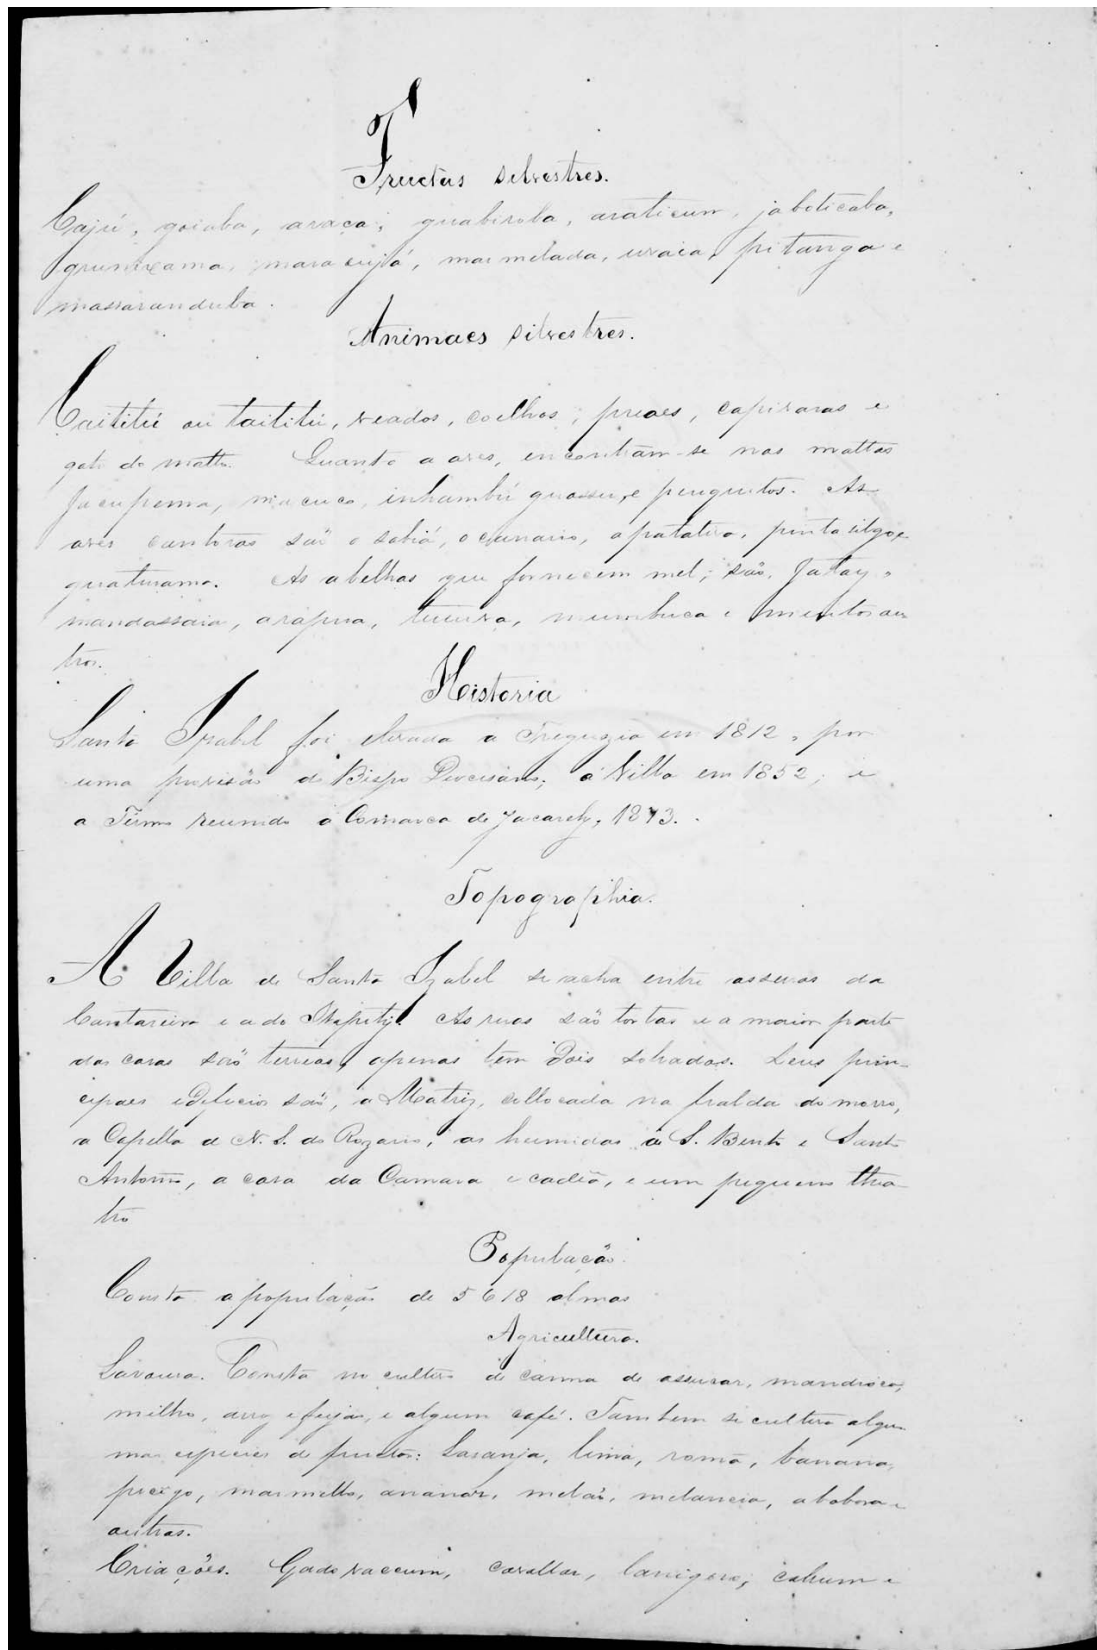 Fructas silvestres.
Cajú, goiaba, araçá, guabiroba, araticum, jaboticaba,
grumixama, maracujá, marmelada, uvaia, pitanga e
massaranduba.
Animaes silvestres.
Caititú ou taititú, veados, coelhos, preaes, capivaras e
gato do matto. Quanto a aves, encontram-se nas mattas
Jacupema, macuco, inhambú guassu, e periquitos. As
aves cantoras são o sabiá, o canario, a patativa, pintasilgo, e
gaturamo. As abelhas que fornecem mel, são, Jatay,
mandassaia, arapua, mumbuca e muitos ou
tros.
Historia
Santa Izabel foi elevada a Freguezia em 1812, por
uma provisão do Bispo Diocesano; á Villa em 1852; e
a Termo reunido á Comarca de Jacarehy, 1873.
Topographia.
A Villa de Santa Izabel se acha entre as serras da
Cantareira e a do Itapety. As ruas são tortas e a maior parte
das casas são terreas, apenas tem dois sobrados. Seus prin-
cipaes edificios são, a Matriz, collocada na fralda do morro,
a Capella de N. S. do Rozario, as hermidas de S. Bento e Santo
Antonio, a casa da Camara e cadêa, e um pequeno thea
tro
População.
Consta a população de 5618 almas
Agricultura.
Lavoura. Consta no cultivo de canna de assucar, mandioca,
milho, arroz e feijão, e algum café. Tambem se cultiva algu
mas especies de fructas: Laranja, lima, romã, banana,
pecego, marmello, ananaz, melão, melancia, abobora e
outras.
Criações. Gado vaccum, cavallar, lanigero, cabrum e